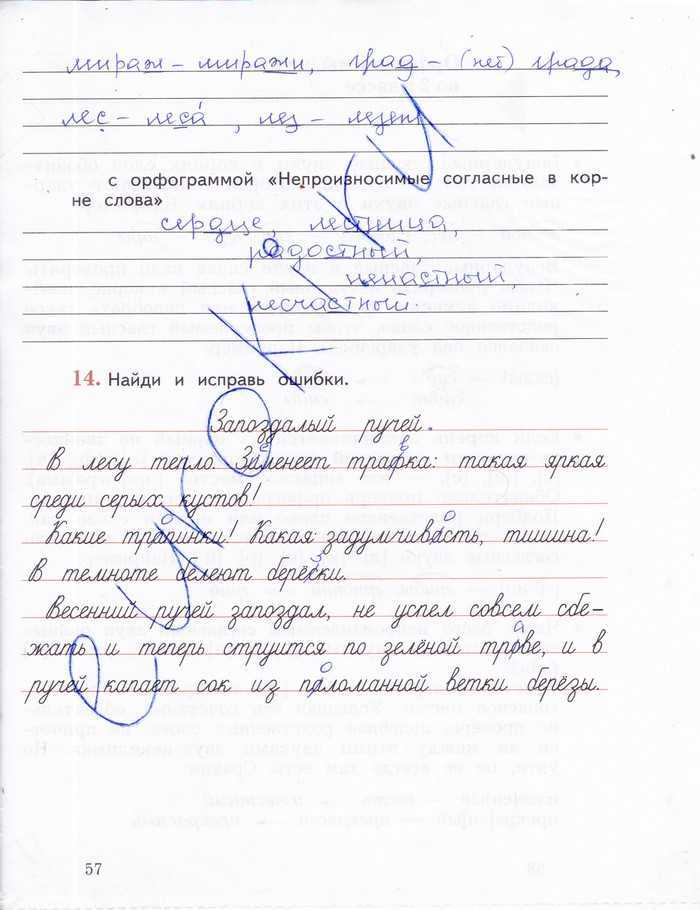 мираж – миражи, град – (нет) града,
лес – леса́, лез – лезет
с орфограммой «Непроизносимые согласные в кор-
не слова»
сердце, лестница,
радостный,
ненастный,
несчастный.
14. Найди и исправь ошибки.
Запоздалый ручей.
В лесу тепло. Зиленеет трафка: такая яркая
среди серых кустов!
Какие трапинки! Какая задумчивасть, тишина!
В темноте белеют берёски.
Весенний ручей запоздал, не успел совсем сбе-
жать и теперь струится по зелёной трове, и в
ручей капает сок из паломанной ветки берёзы.
57